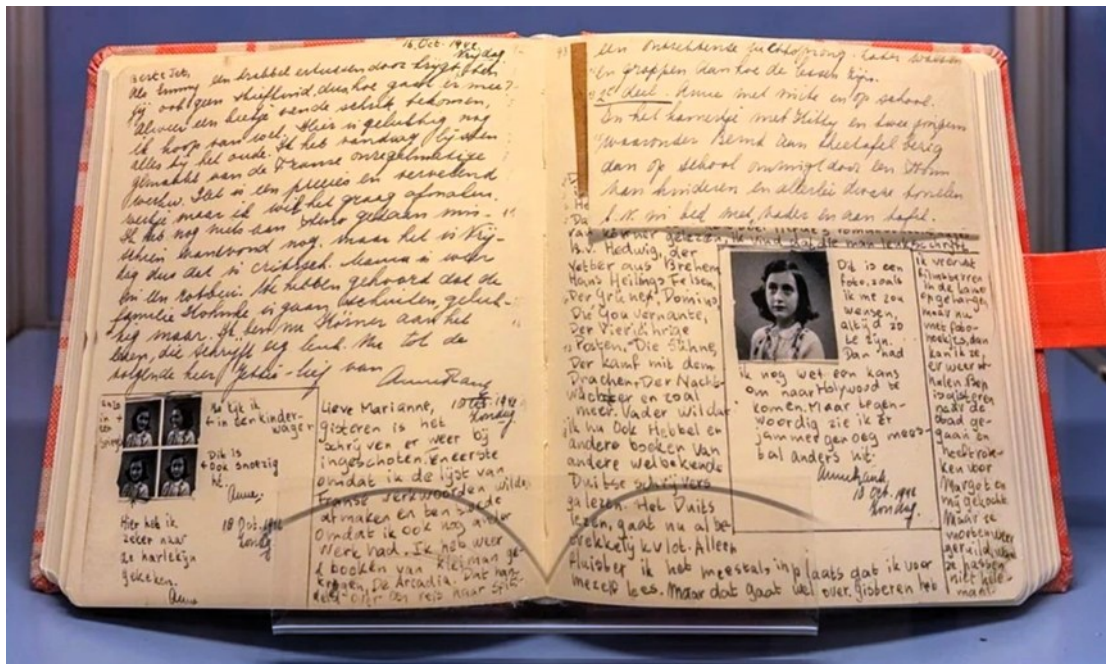 16. Oct. 1942
Vrijdag.
Beste Jet,
Als Emmy een krabbel ertussen door krijgt, ben
jij ook geen stiefkind, dus hoe gaat er mee?
Alweer een beetje van de schrik bekomen,
ik hoop van wel. Hier is gelukkig nog
alles bij het oude. Ik heb vandaag lijsten
gemaakt van de Franse onregelmatige
werkw. Het is een precies en vervelend
werkje maar ik wil het graag afmaken.
Ik heb nog niets aan steno gedaan mis-
schien vanavond nog, maar het is Vrij-
dag dus dat is critisch. Mama is weer
in een rotbui. We hebben gehoord dat de
familie is gaan schuilen, geluk-
kig maar. Ik ben nu Körner aan het
lezen, die schrijft erg leuk. Nu tot de
volgende keer -lief van
Anne Frank
Nu lijk ik
in een kinder-
wagen
Dit is
ook snoezig
hè.
Anne.
Hier heb ik
zeker naar
de harlekijn
gekeken.
Anne
18 Oct. 1942
Zondag.
Lieve Marianne, 18 Oct. 1942
Zondag.
gisteren is het
schrijven er weer bij
ingeschoten. Ten eerste
omdat ik de lijst van
Franse werkwoorden wilde
afmaken en ten tweede
omdat ik ook nog ander
werk had. Ik heb weer
2 boeken van Kleiman ge-
kregen, De Arcadia, Dat han-
delt over een reis naar Spits-
een ontzettende luchtsprong. Later wassen
en grappen dan hoe de lessen zijn.
2de deel. Anne met mite en op school.
In het kamertje met Kitty en twee jongens
waaronder Bernd aan theetafel bezig
dan op school omringd door een drom
van kinderen en allerlei dwaze tonelen
b.v. in bed met vader en aan tafel.
van Körner gelezen, ik vind dat die man leuk schrijft
b.v. Hedwig, der
Vetter aus Bremen,
Hans Heilings Felsen,
Der Grüne Domino,
Die Gouvernante,
Der Vierjährige
Posten, Die Sühne,
Der Kampf mit dem
Drachen, Der Nacht-
wächter en zoal
meer. Vader wil dat
ik nu ook Hebbel en
andere boeken van
andere welbekende
Duitse schrijvers
ga lezen. Het Duits
lezen, gaat nu al be-
trekkelijk vlot. Alleen
fluister ik het meestal, in plaats dat ik voor
mezelf lees. Maar dat gaat wel over, gisteren heb
Dit is een
foto, zoals
ik me zou
wensen,
altijd zo
te zijn.
Dan had
ik nog wel een kans
om naar Holywood te
komen. Maar tegen-
woordig zie ik er
jammer genoeg mees-
tal anders uit.
Anne Frank.
18 Oct. 1942
Zondag.
in de la
opgehangen
maar nu
met foto-
hoekjes, dan
kan ik ze
er weer af-
halen. Bep
is gisteren
naar de
stad ge-
gaan en
heeft rok-
ken voor
Margot en
mij gekocht
Maar ze
moeten weer
geruild,
ze passen
niet hele-
maal.